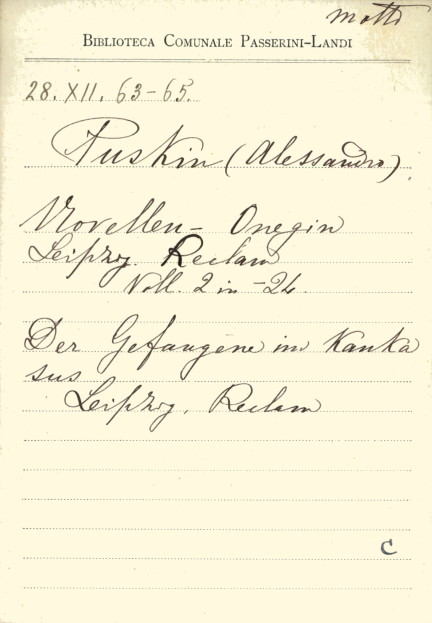 motti
BIBLIOTECA COMUNALE PASSERINI-LANDI
28. XII. 63-65.
Puskin (Alessandro).
Novellen - Onegin
Leipzig. Reclam
Voll. 2 in -24.
Der Gefangene im Kauka
sus
Leipzig. Reclam
C